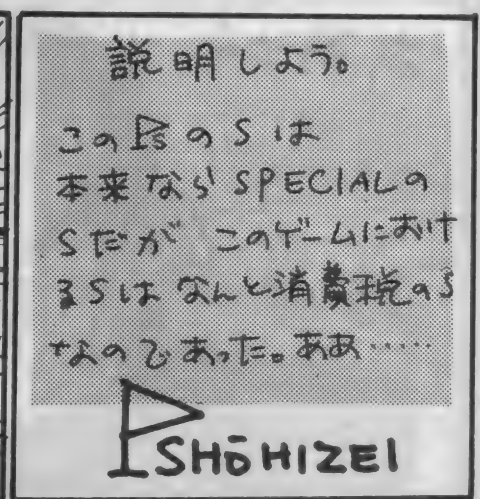 説明しよう。
このPSのSは
本来ならSPECIALの
Sだが このゲームにおけ
るSはなんと消費税のS
なのであった。ああ……
PSHŌHIZEI